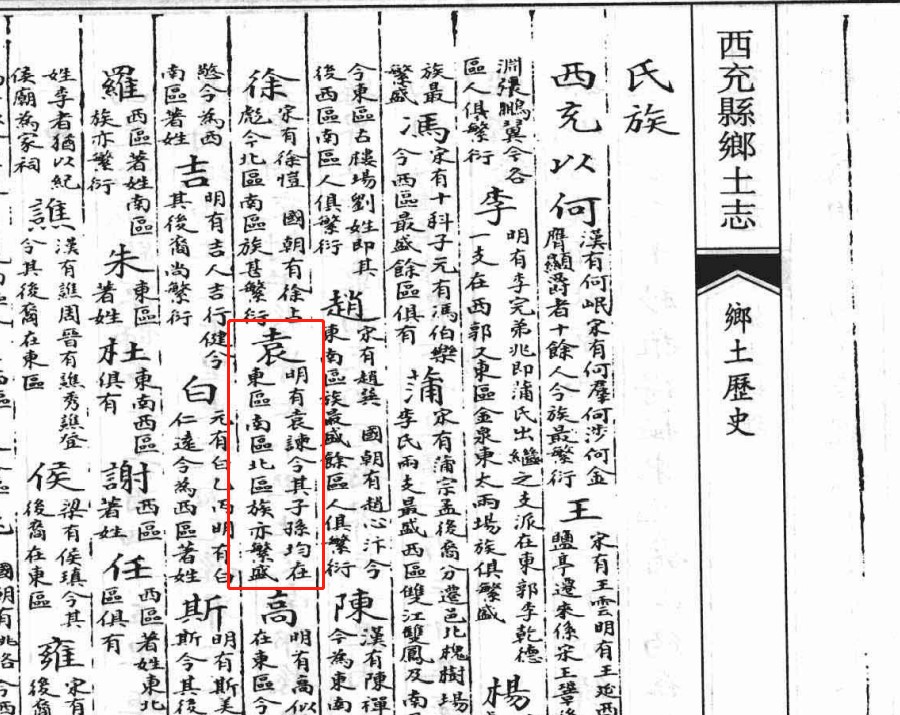 西充縣鄉土志
鄉土歷史
氏族
西充以何
漢有何岷宋有何羣何涉何金
膺顯爵者十餘人今族最繁衍
王
宋有王雲明有王廷西
鹽亭遷來係宋王肇後
淵張鵬翼今各
區人俱繁衍
李
明有李完弟兆即蒲氏出繼之支派在東郭李乾德
一支在西郭又東區金泉東太兩場族俱繁盛
楊
族最
繁盛
馮
宋有十科子元有馮伯樂
今西區最盛餘區俱有
蒲
宋有蒲宗孟後裔分遷邑北槐樹場
李氏兩支最盛西區雙江雙鳳及南
今東區古樓場劉姓即其
後西區南區人俱繁衍
趙
宋有趙巽 國朝有趙心汴今
東南區族最盛餘區人俱繁衍
陳
漢有陳禪
今為東南
徐
宋有徐愷 國朝有徐上
彪今北區南區族甚繁衍
袁
明有袁諫今其子孫均在
東區南區北區族亦繁盛
高
明有高似
在東區今
憨今為西
南區著姓
吉
明有吉人吉行健今
其後裔尚繁衍
白
元有白乙丙明有白
仁遠今為西區著姓
斯
明有斯美
斯今其後
羅
西區著姓南區
族亦繁衍
朱
東區
著姓
杜
東南西區
俱有
謝
西區
著姓
任
西區著姓東北
區俱有
姓李者猶以紀
侯廟為家祠
譙
漢有譙周晉有譙秀譙登
今其後裔在東區
侯
梁有侯瑱今其
後裔在東區
雍
宋有
後裔